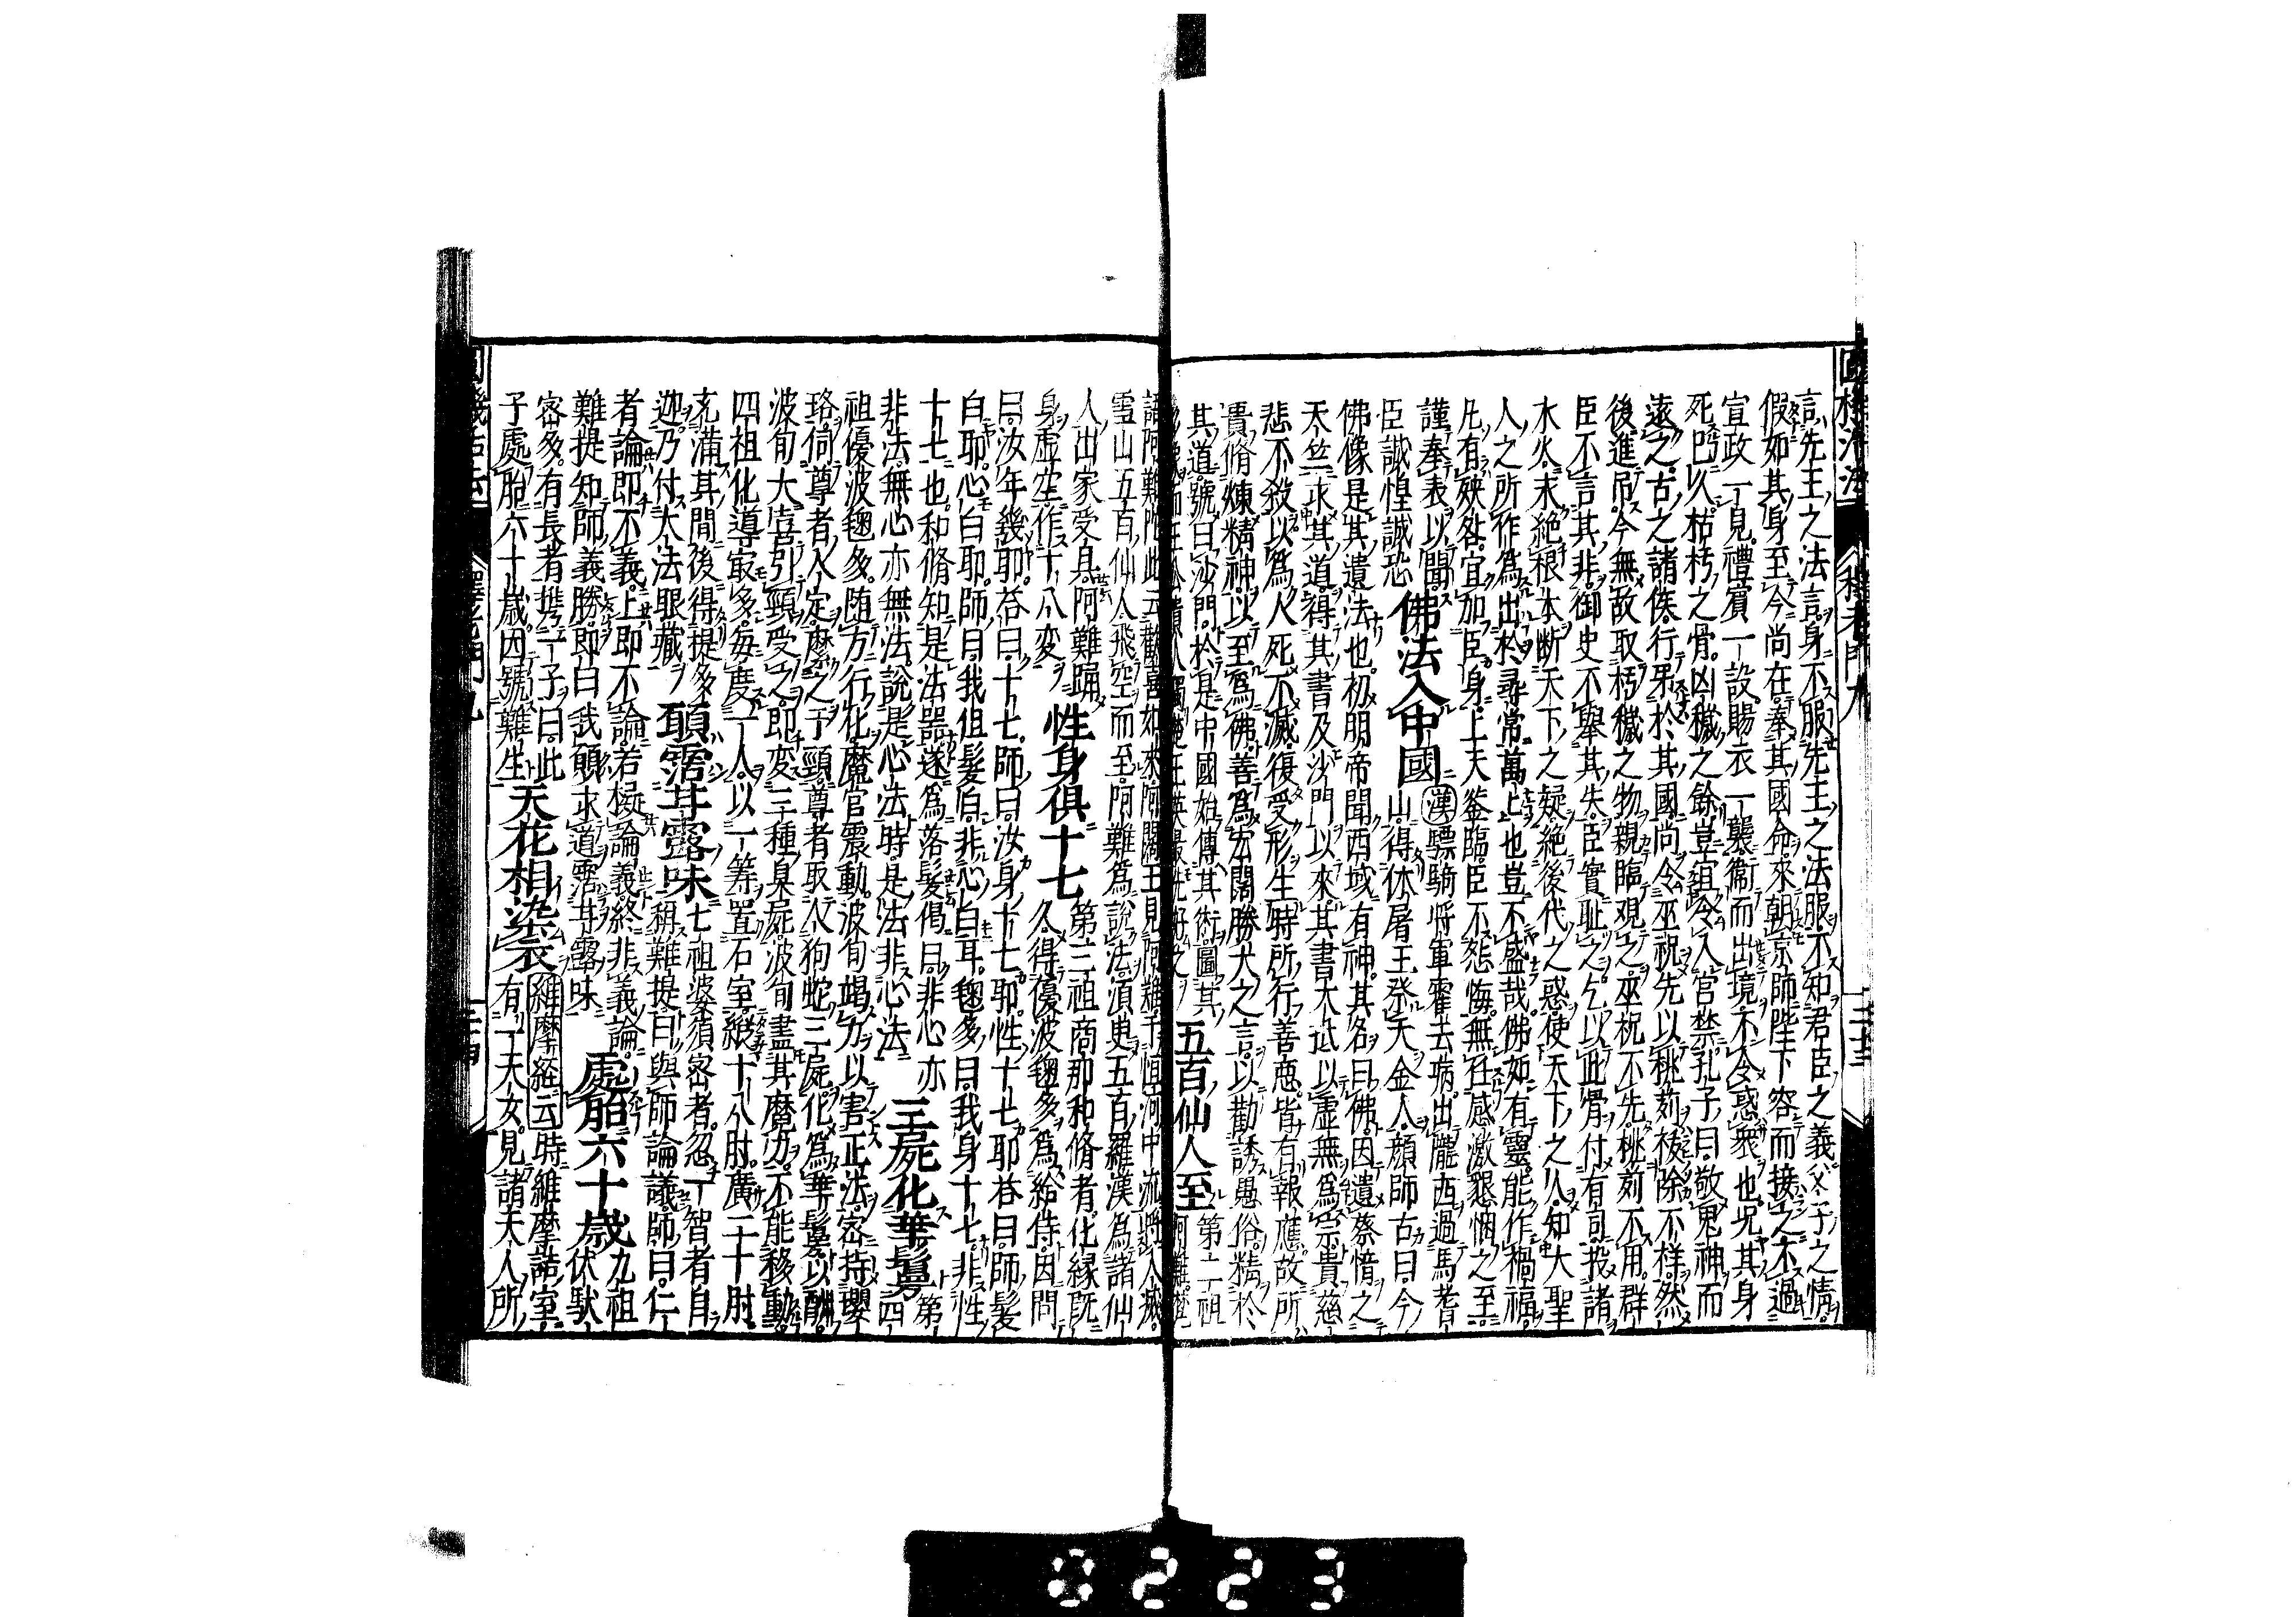 言先王之法言身不服先王之法服不知君臣之義父子之情
假如其身至今尚在奉其國命來朝京師陛下容而接之不過
宣政一見禮賓一設賜衣一襲衛而出境不令惑衆也况其身
死已久枯朽之骨凶穢之餘豈宜令入宮禁孔子曰敬鬼神而
遠之古之諸侯行吊於其國尚令巫祝先以桃茢祓除不祥然
後進吊今無故取朽穢之物親臨觀之巫祝不先桃茢不用群
臣不言其非御史不舉其失臣實耻之乞以此骨付有司投諸
水火永絶根本断天下之疑絶後代之惑使天下之人知大聖
人之所作為出於尋常萬上也豈不盛哉佛如有靈能作禍福
凡有殃咎宜加臣身上天鉴臨臣不怨悔無任感激懇悃之至
謹奉表以聞
臣誠惶誠恐 佛法入中國 漢驃騎將軍霍去病出隴西過馬耆
山得休屠王祭天金人顔師古曰今
佛像是其遺法也初明帝聞西域有神其名曰佛因遣蔡愔之
天竺求其道得其書及沙門以來其書大抵以虚無為宗貴慈
悲不殺以為人死不滅復受形生時所行善惡皆有報應故所
貴脩煉精神以至為佛善為宏闊勝大之言以勸誘愚俗精於
其道號曰沙門於是中國始傳其術圖其 五百仙人至 第二祖
阿難
雪山五百仙人飛空而至阿難為說法須臾五百羅漢為諸仙
人出家受具阿難踊
身虚空作十八変 性身俱十七 第三祖商那和脩者化緣既
久得優波毱多為給侍因問
曰汝年幾耶答曰十七師曰汝身十七耶性十七耶答曰師髮
白耶心白耶師曰我但髮白非心白耳毱多曰我身十七非性
十七也和脩知是法器遂為落髮偈曰非心亦
非法無心亦無法說是心法時是法非心法 三屍化華鬘 第四
祖優波毱多随方行化魔官震動波旬竭力以害正法密持瓔
珞伺尊者入定縻之于頸尊者取人狗蛇三屍化為華鬘以酬
波旬大喜引頸受之即変三種臭屍波旬盡其魔力不能移動
四祖化導最多毎度一人以一籌置石室縱十八肘廣十二肘
充滿其間後得提多
迦乃付大法眼藏 頭霑甘露味 七祖婆須密者忽一智者自
稱難提曰與師論議師曰仁
者論即不義上即不論若擬論義終非義論
難提知師義勝即曰我願求道霑甘露味 處胎六十歳 九祖
伏馱
密多有長者携一子曰此
子處胎六十歳因號難生 天花相染衣 維摩經云時維摩詰室
有一天女見諸天人所
0223